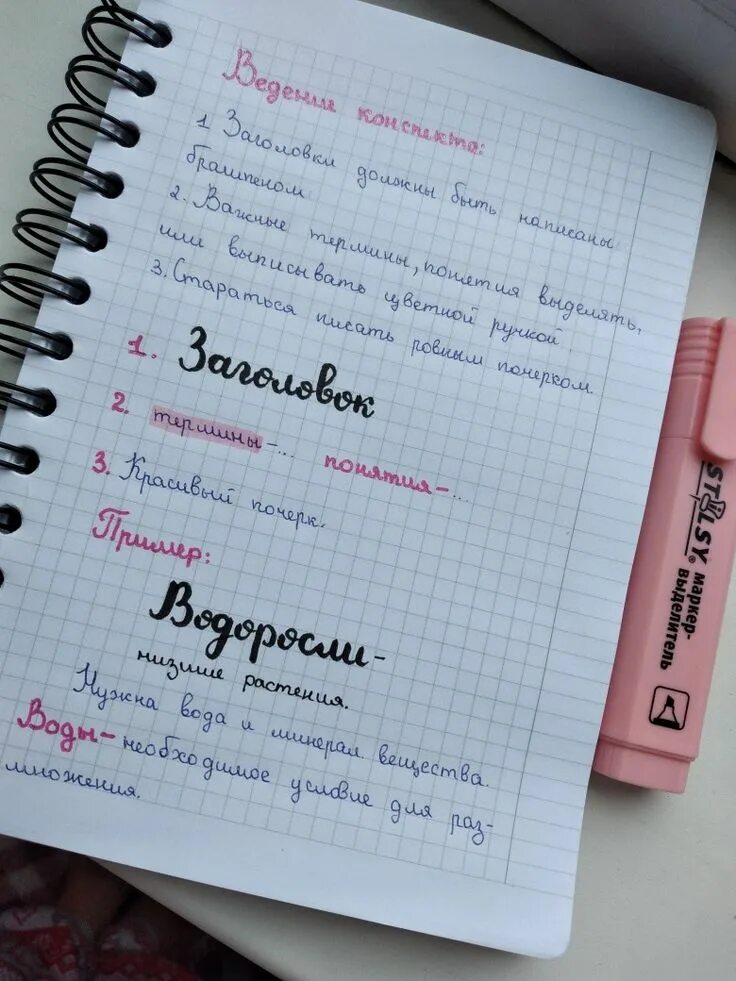 Ведение конспекта:
1 Заголовки должны быть написаны
брашпеном.
2. Важные термины, понятия выделять,
или выписывать цветной ручкой.
3. Стараться писать ровным почерком.
1. Заголовок
2. термины-... понятия-...
3. Красивый почерк.
Пример:
Водоросли-
низшие растения.
Нужна вода и минерал. вещества.
Воды-необходимое условие для раз-
множения.
STILSY® маркер-
выделитель